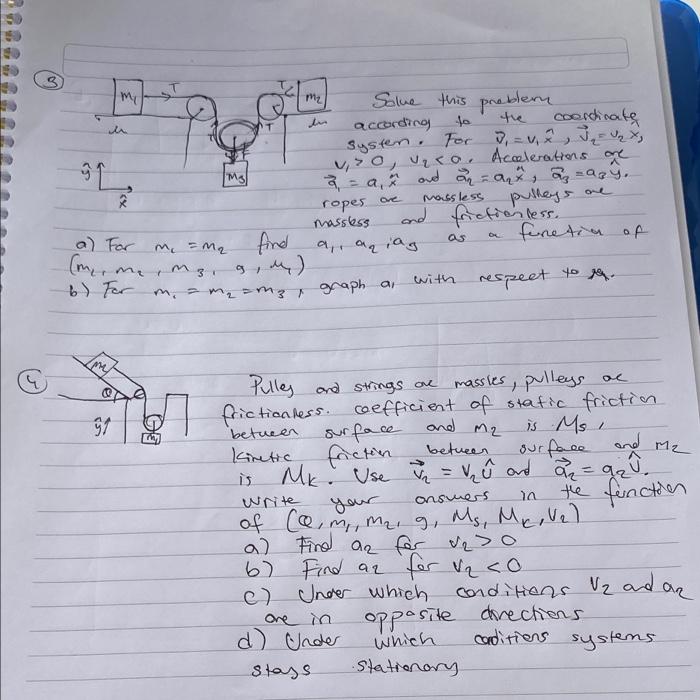 3
m₁ T T m₂
T T
m₃
ŷ
x̂
Solve this problem
according to the coordinate
system. For v⃗₁ = v₁x̂, v⃗₂ = v₂x̂,
v₁ > 0, v₂ < 0. Accelerations are
a⃗₁ = a₁x̂ and a⃗₂ = a₂x̂, a⃗₃ = a₃ŷ.
ropes are massless pulleys are
massless and frictionless.
a) For m₁ = m₂ find a₁, a₂, a₃ as a function of
(m₁, m₂, m₃, g, μ)
b) For m₁ = m₂ = m₃, graph a₁ with respect to
4
m₂
Q
ŷ
m₁
Pulley and strings are massles, pulleys are
frictionless. coefficient of static friction
between surface and m₂ is Ms,
kinetic friction between surface and m₂
is Mk. Use v⃗₂ = v₂û and a⃗₂ = a₂û.
write your answers in the function
of (Q, m₁, m₂, g, Ms, Mk, v₂)
a) Find a₂ for v₂ > 0
b) Find a₂ for v₂ < 0
c) Under which conditions v₂ and a₂
are in opposite directions
d) Under which conditions systems
stays stationary